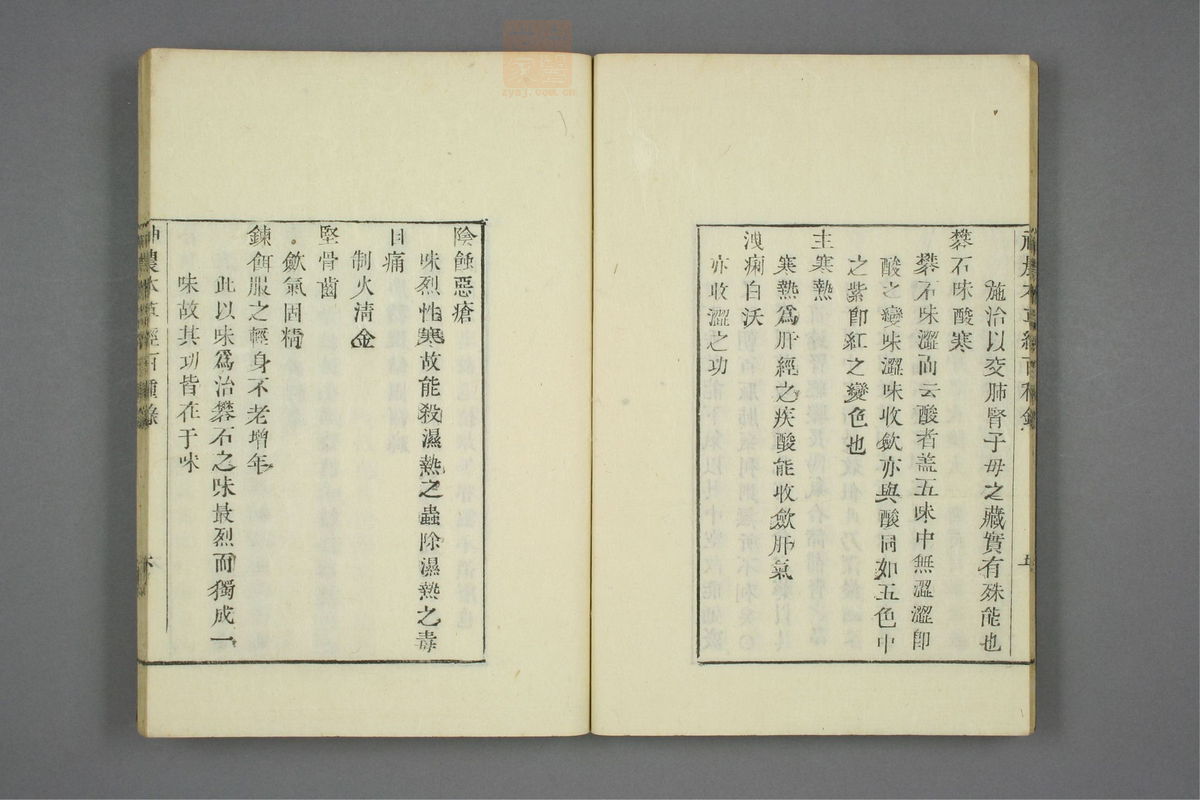 施治以交肺腎子母之藏實有殊能也
礬石味酸寒
礬石味澀而云酸者盖五味中無澀澀即
酸之變味澀味收斂亦與酸同如五色中
之紫即紅之變色也
主寒熱
寒熱爲肝經之疾酸能收斂肝氣
洩痢白沃
亦收澀之功
陰蝕惡瘡
味烈性寒故能殺濕熱之蟲除濕熱之毒
目痛
制火淸金
堅骨齒
斂氣固精
鍊餌服之輕身不老增年
此以味爲治礬石之味最烈而獨成一
味故其功皆在于味
神農本草經百種錄
六
zysj.com.cn